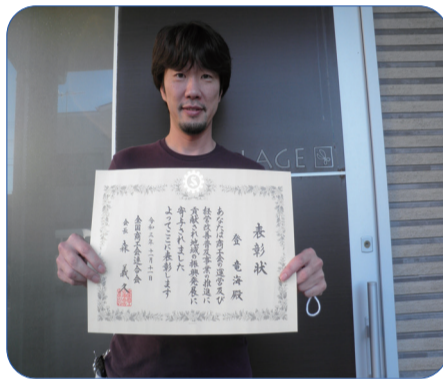 表彰状
登 竜海 殿
あなたは商工会の運営及び
経営改善普及事業の推進に
貢献され地域の振興発展に
寄与されました
よってここに表彰します
令和三年十一月十一日
全国商工会連合会
会長 森 義久
LAGE